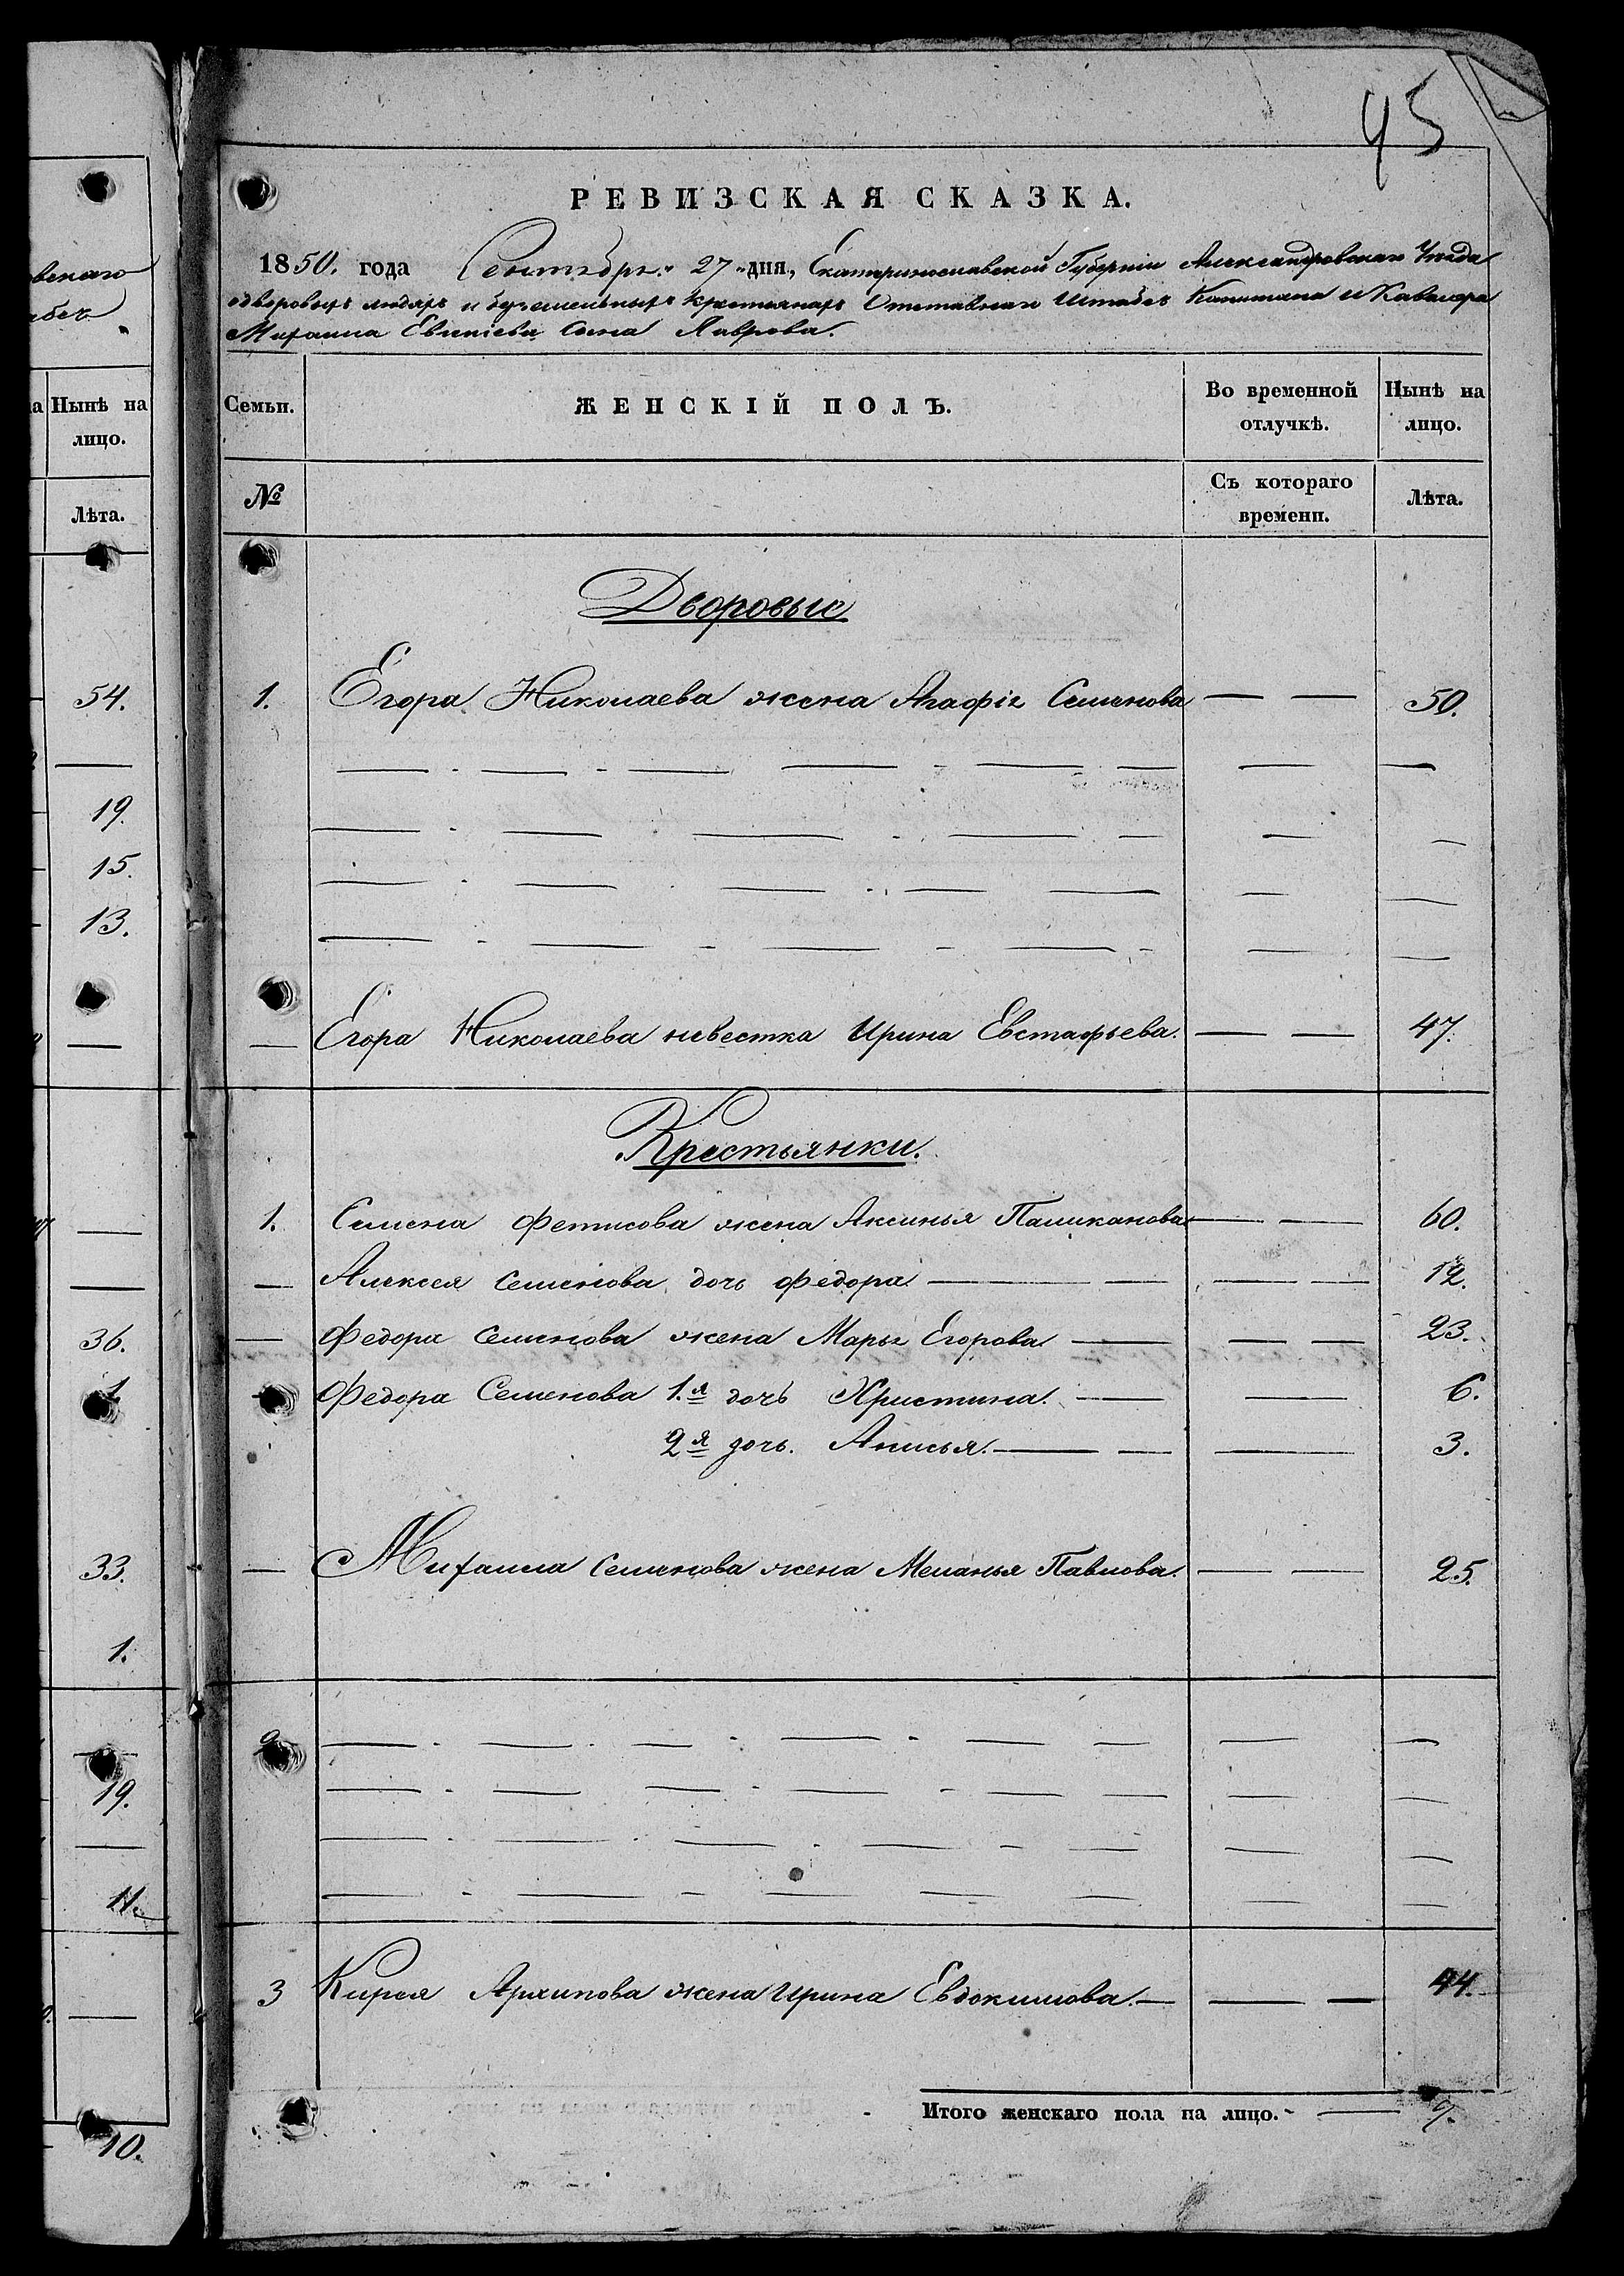 вскаго
абсъ
а Нынѣ на
лицо.
Лѣта.
54.
19.
15.
13.
36.
1
33.
1.
19.
11.
10.
45
РЕВИЗСКАЯ СКАЗКА.
1850. года Сентября „27„ дня, Екатеринославской Губерніи Александровскаго Уѣзда
одворовыхъ людяхъ и безземельныхъ крестьянахъ Отставнаго Штабсъ Капитана и Кавалера
Михаила Евсикіева сына Лаврова.
Семьи.
ЖЕНСКІЙ ПОЛЪ.
Во временной отлучкѣ.
Нынѣ на лицо.
№
Съ котораго времени.
Лѣта.
Дворовые
1. Егора Николаева жена Агафія Семенова — — 50.
— Егора Николаева невестка Ирина Евстафьева. — — 47.
Крестьянки.
1. Семена Фетисова жена Аксинья — — 60.
— Алексея Семенова дочь Федора — — 12.
— Федора Семенова жена Марья Егорова — — 23.
— Федора Семенова 1.я дочь Христина. — — 6.
2я дочь. Анисья. — — 3.
— Михаила Семенова жена Меланья Павлова. — — 25.
2
3 Кирея Архипова жена Ирина Евдокимова. — — 44.
Итого женскаго пола на лицо. — 9.